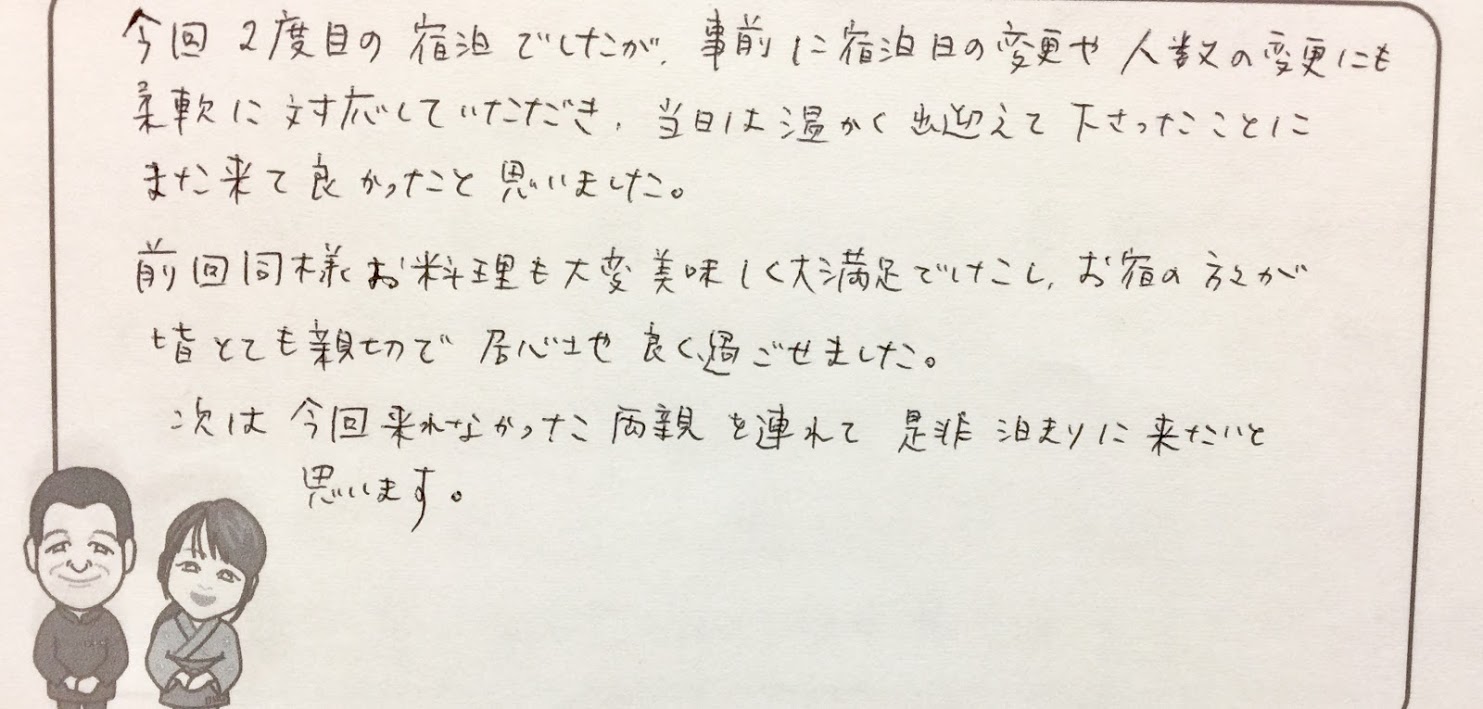 今回 2度目の 宿泊 でしたが、事前に宿泊日の変更や 人数の変更にも
柔軟に対応していただき、当日は温かく出迎えて下さったことに
また来て良かったと思いました。
前回同様お料理も大変美味しく大満足でしたし、お宿の方々が
皆とても親切で 居心地 良く過ごせました。
次は 今回来れなかった 両親 を連れて 是非 泊まりに来たいと
思います。